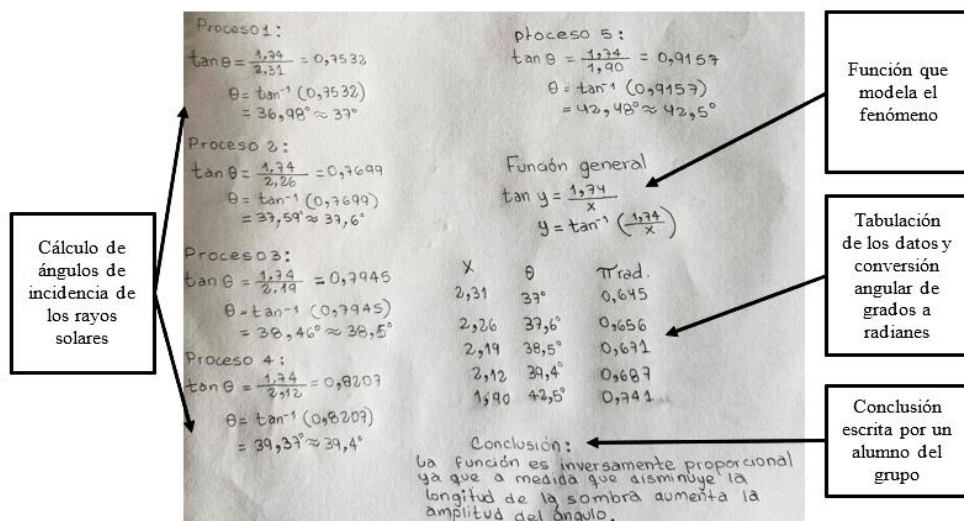 Proceso1:
tanθ = 1,74/2,31 = 0,7532
θ = tan⁻¹ (0,7532)
= 36,98° ≈ 37°
Proceso 2:
tanθ = 1,74/2,26 = 0,7699
θ = tan⁻¹ (0,7699)
= 37,59° ≈ 37,6°
Proceso3:
tanθ = 1,74/2,19 = 0,7945
θ = tan⁻¹ (0,7945)
= 38,46° ≈ 38,5°
Proceso 4:
tanθ = 1,74/2,12 = 0,8207
θ = tan⁻¹ (0,8207)
= 39,37° ≈ 39,4°
proceso 5:
tan θ = 1,74/1,90 = 0,9157
θ = tan⁻¹ (0,9157)
= 42,48° ≈ 42,5°
Función general
tan y = 1,74/x
y = tan⁻¹ (1,74/x)
X θ π rad.
2,31 37° 0,645
2,26 37,6° 0,656
2,19 38,5° 0,671
2,12 39,4° 0,687
1,90 42,5° 0,741
Conclusión:
La función es inversamente proporcional
ya que a medida que disminuye la
longitud de la sombra aumenta la
amplitud del ángulo.
Cálculo de
ángulos de
incidencia de
los rayos
solares
Función que
modela el
fenómeno
Tabulación
de los datos y
conversión
angular de
grados a
radianes
Conclusión
escrita por un
alumno del
grupo